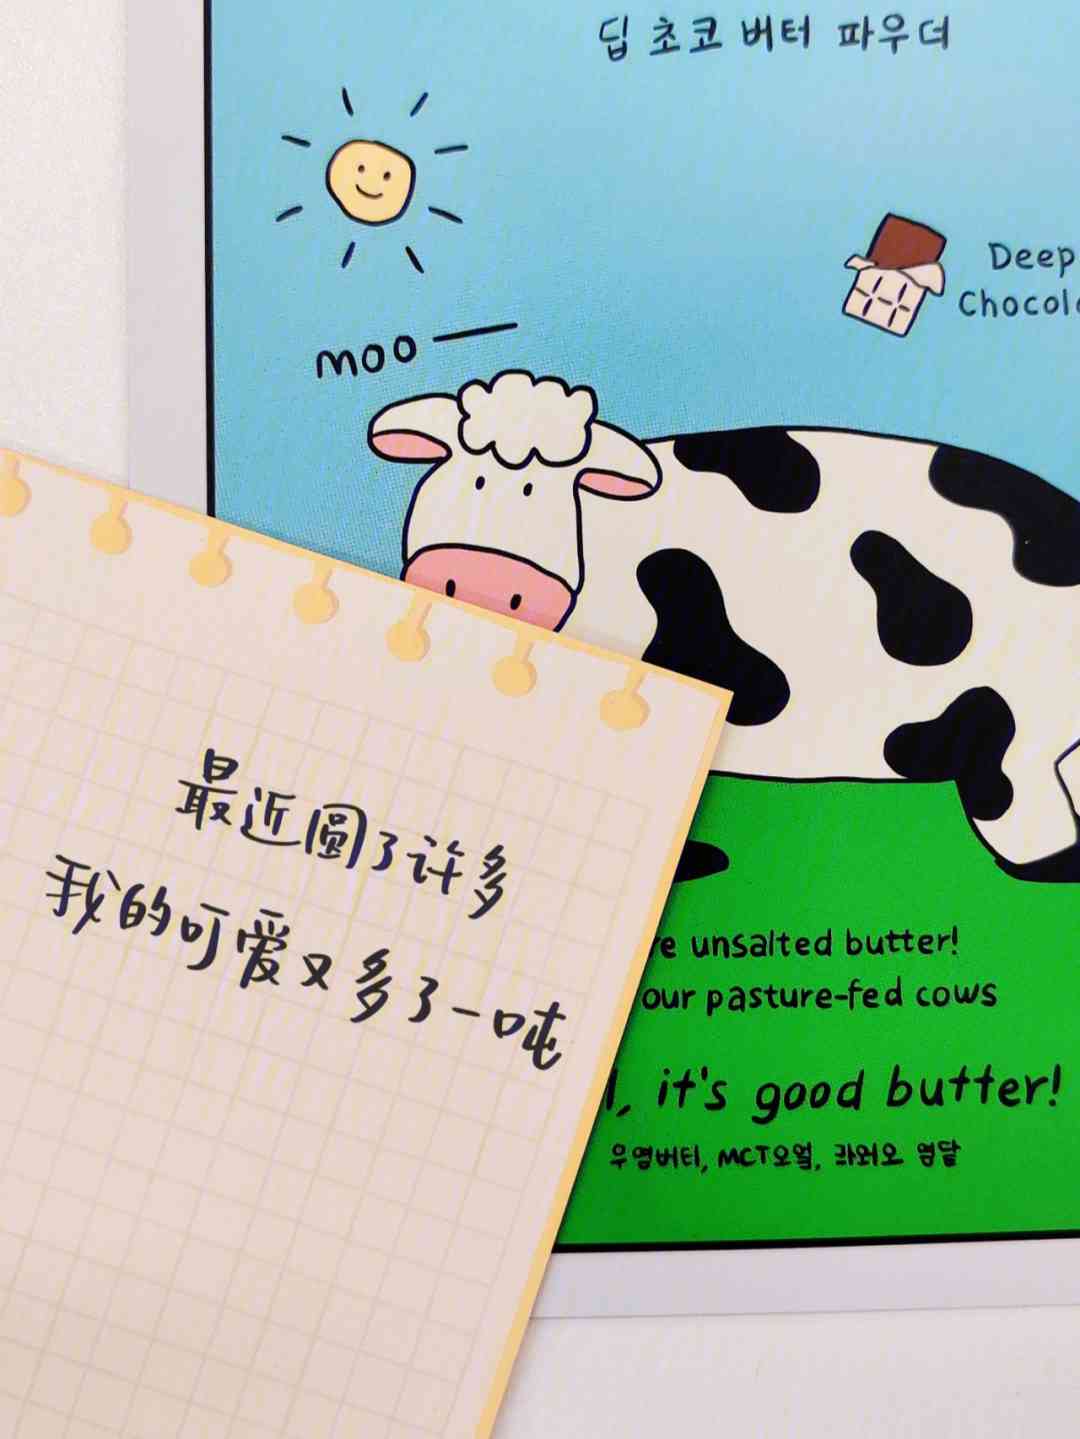 딥 초코 버터 파우더
Deep
Chocol
moo
最近圆了许多
我的可爱又多了一吨
unsalted butter!
our pasture-fed cows
it's good butter!
MCT오일,